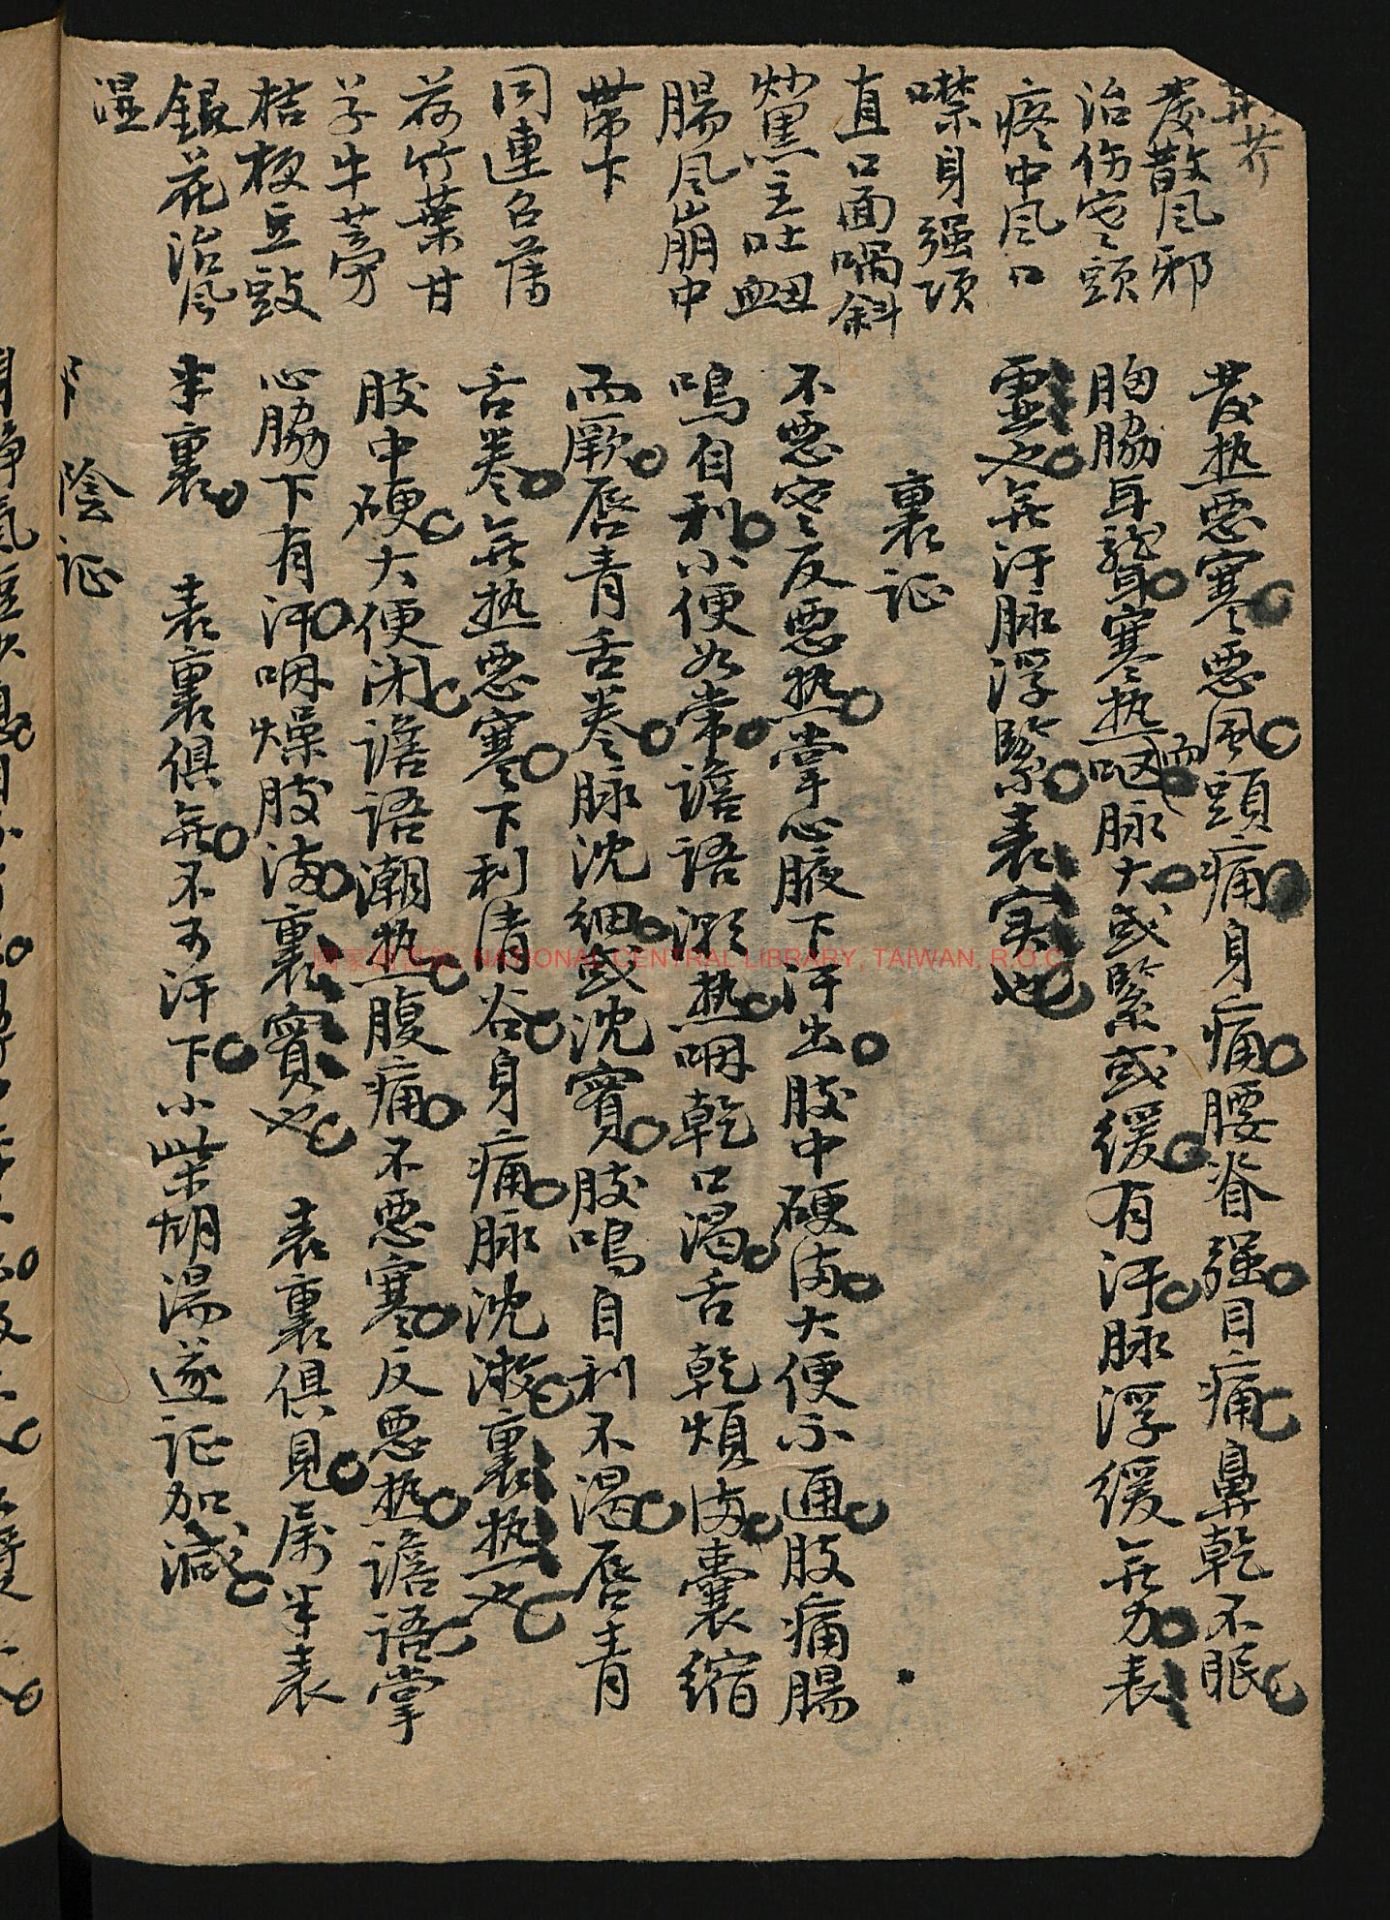 荆芥
发散风邪
治伤寒頭
疼中风口
噤身强项
直口面喎斜
炒黑主吐衄血
腸风崩中
帶下
同連召薄
荷竹葉甘
草牛蒡
桔梗豆豉
銀花治风
濕
发热恶寒恶風頭痛身痛腰脊强目痛鼻乾不眠
胸脇耳聾寒热而呕脉大或緊或缓有汗脉浮缓無力表
虚也無汗脉浮緊表实也
裏证
不恶寒反恶热掌心腋下汗出肢中硬满大便不通肢痛腸
鳴自利小便如常譫語潮热咽乾口渴舌乾煩满囊缩
而厥唇青舌卷脉沈細或沈實肢鳴自利不渴唇青
舌卷無热恶寒下利清谷身痛脉沈微裏热也
肢中硬大便闭譫語潮热腹痛不恶寒反恶热譫語掌
心脇下有汗咽燥肢满裏實也 表裏俱見属半表
半裏 表裏俱無不可汗下小柴胡湯遂证加減
陰证
國家圖書館 NATIONAL CENTRAL LIBRARY, TAIWAN, R.O.C